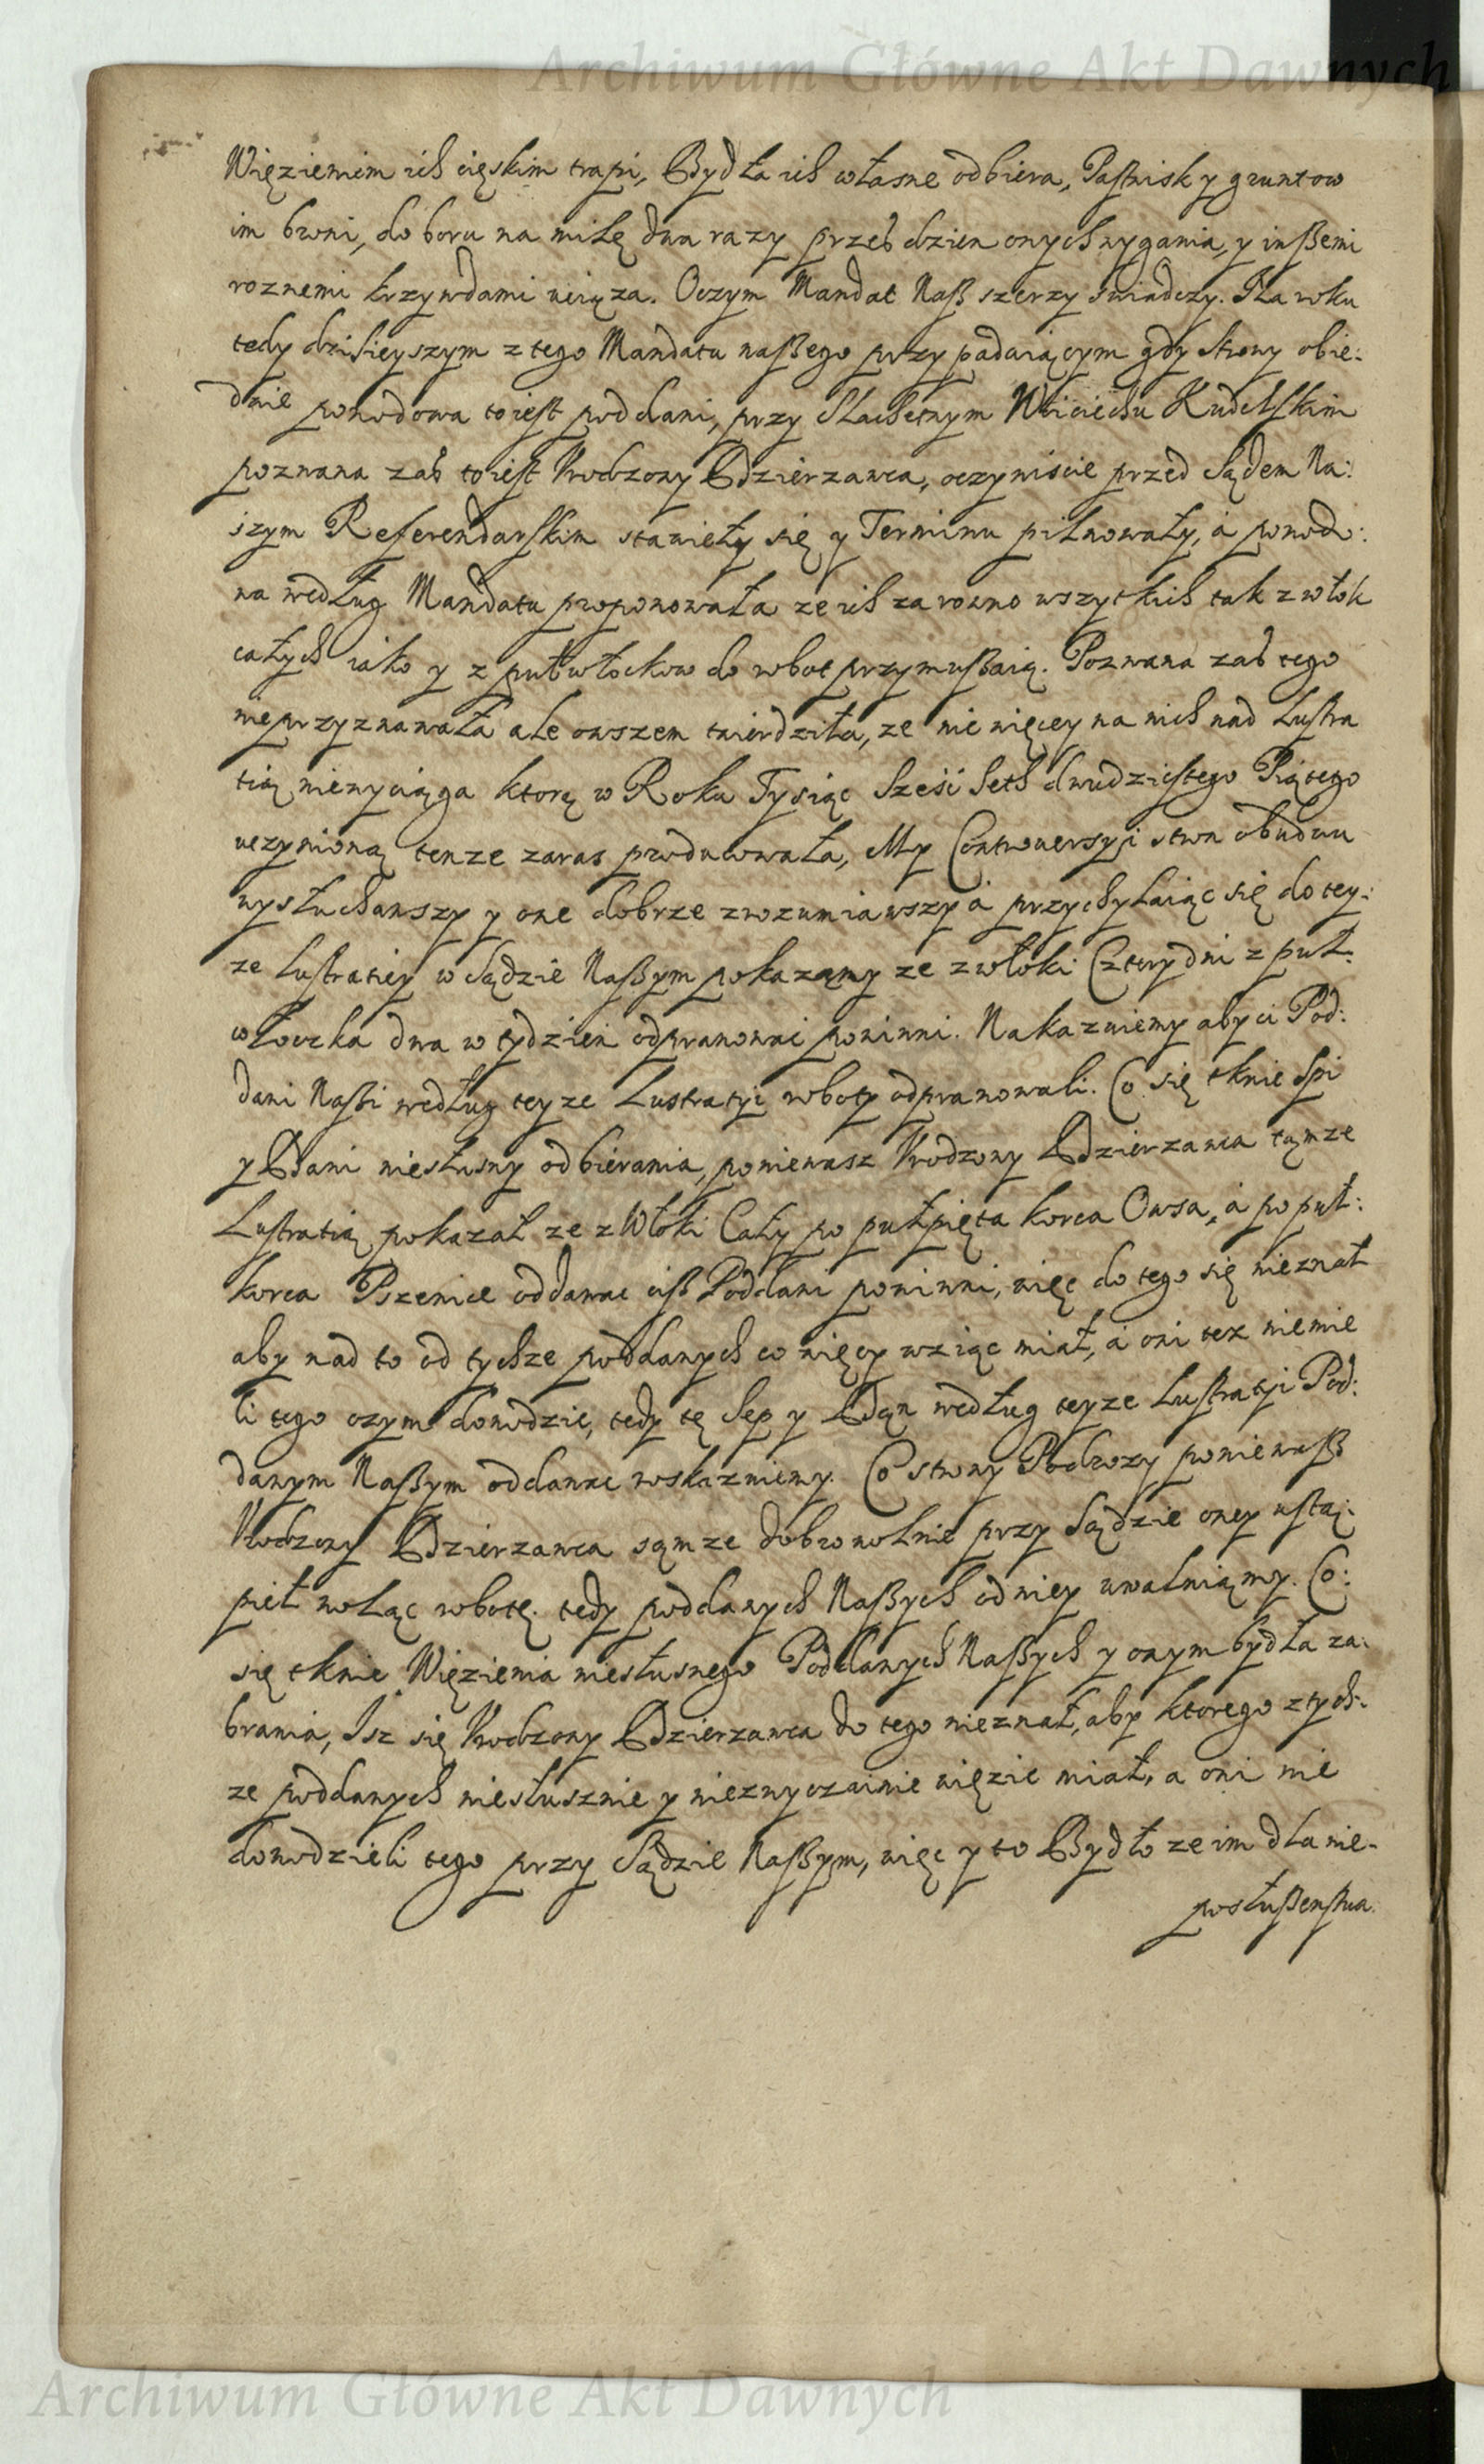 Archiwum Główne Akt Dawnych
Więzieniem ich cięskim trapi, Bydła ich własne odbiera, Pastwisk y gruntow
im broni, do boru na milę dwa razy przeb dzien onych wygania, y inßemi
roznemi krzywdami uciąza. Oczym Mandat Naß szerzy swiadczy. Na roku
tedy dzisieyszym z tego Mandatu naßego przypadaiącym gdy strony obie:
dwie powodowa to iest poddani, przy Slachetnym Woiciechu Kudelskim
pozwana zas to iest Vrodzony Dzierzawca, oczywiscie przed Sądem Na:
szym Referendarskim stawieły się y Terminu pilnowały, á powodo:
wa według Mandatu proponowała ze ich zarowno wszytkich tak z włok
całych iako y z pułwłockow do robot przymußaią. Pozwana zas tego
nieprzyznawała ale owszem twierdziła, ze nic więcey na nich nad Lustra
tią niewyciąga ktorą w Roku Tysiąc Szesć Seth dwudziestego Piątego
uczynioną tenze zaras producowała, My Controuersyi stron obudwu
wysłuchawszy y one dobrze zrozumiawszy á przychylaiąc się do tey:
ze Lustratiey w Sądzie Naßym pokazaney ze z włoki Cztery dni z puł:
włoczka dwa w tydzien odprawowac powinni. Nakazuiemy aby ci Pod:
dani Naßi według teyze Lustratyi roboty odprawowali. Co się tknie Spi
y Dani niesłusny odbierania, poniewasz Vrodzony Dzierzawca tąmze
Lustratią pokazał ze z Włoki Cały po pułpięta korca Owsa, á po puł:
korca Pszenice oddawac ciß Poddani powinni, więc do tego się nieznał
aby nad to od tychze poddanych co więcy wziąc miał, á oni tez niemie
li tego czym dowodzic, tedy tę Sep y Dań według teyze Lustratyi Pod:
danym Naßym oddawac wskazuiemy. Co strony Podrozy poniewaß
Vrodzony Dzierzawca sąmze dobrowolnie przy Sądzie oney ustą:
pieł woląc robotę. tedy poddanych Naßych od niey uwalniąmy. Co:
się tknie Więzienia niesłusnego Poddanych Naßych y onym bydła za:
brania, Isz się Vrodzony Dzierzawca do tego nieznał, aby ktorego z tych:
ze poddanych niesłusznie y niezwyczainie więzic miał, a oni nie
dowodzieli tego przy Sądzie Naßym, więc y to Bydło ze im dla nie-
posłußenstwa.
Archiwum Główne Akt Dawnych